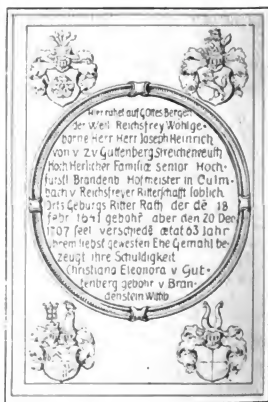 Hier ruhet auf GOttes Bergen
der Weil Reichsfrey Wohlge=
borne Herr Herr Joseph Heinrich
von v Zv Guttenberg Streichenreuth
Hoch Herlicher Familie senior Hoch=
fürstl Brandenb Hofmeister in Culm=
bach Reichsfreyer Ritterschaft löblich
Orts Geburgs Ritter Rath der dē 18
febr gebohr aber den 20 Dec
1707 seel verschiedē ætat 63 Jahr
ihrem liebst gewesten Ehe Gemahl be=
zeugt ihre Schuldigkeit
Christiana Eleonora v Gut=
tenberg gebohr v Bran=
denstein Wittib